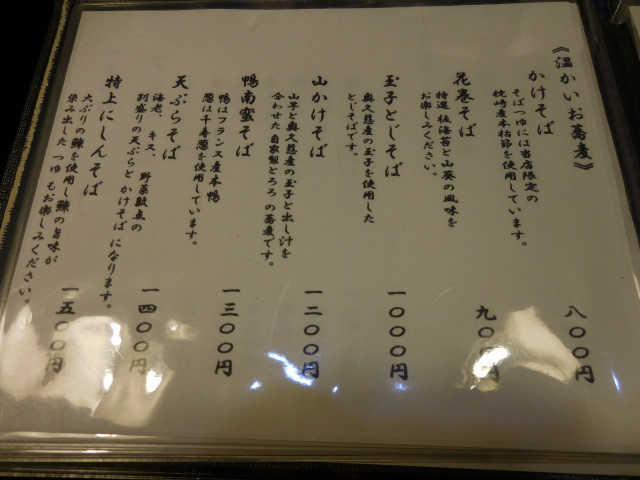 《温かいお蕎麦》
かけそば
そばつゆには当店限定の
枕崎産本枯節を使用しています。
八〇〇円
花巻そば
特選板海苔と山葵の風味を
お楽しみください。
九〇〇円
玉子とじそば
奥久慈産の玉子を使用した
とじそばです。
一〇〇〇円
山かけそば
山芋と奥久慈産の玉子と出し汁を
合わせた自家製とろろの蕎麦です。
一二〇〇円
鴨南蛮そば
鴨はフランス産本鴨
葱は千寿葱を使用しています。
一三〇〇円
天ぷらそば
海老、キス、野菜数点の
別盛りの天ぷらとかけそばになります。
一四〇〇円
特上にしんそば
大ぶりの鰊を使用し鰊の旨味が
染み出したつゆもお楽しみください。
一五〇〇円